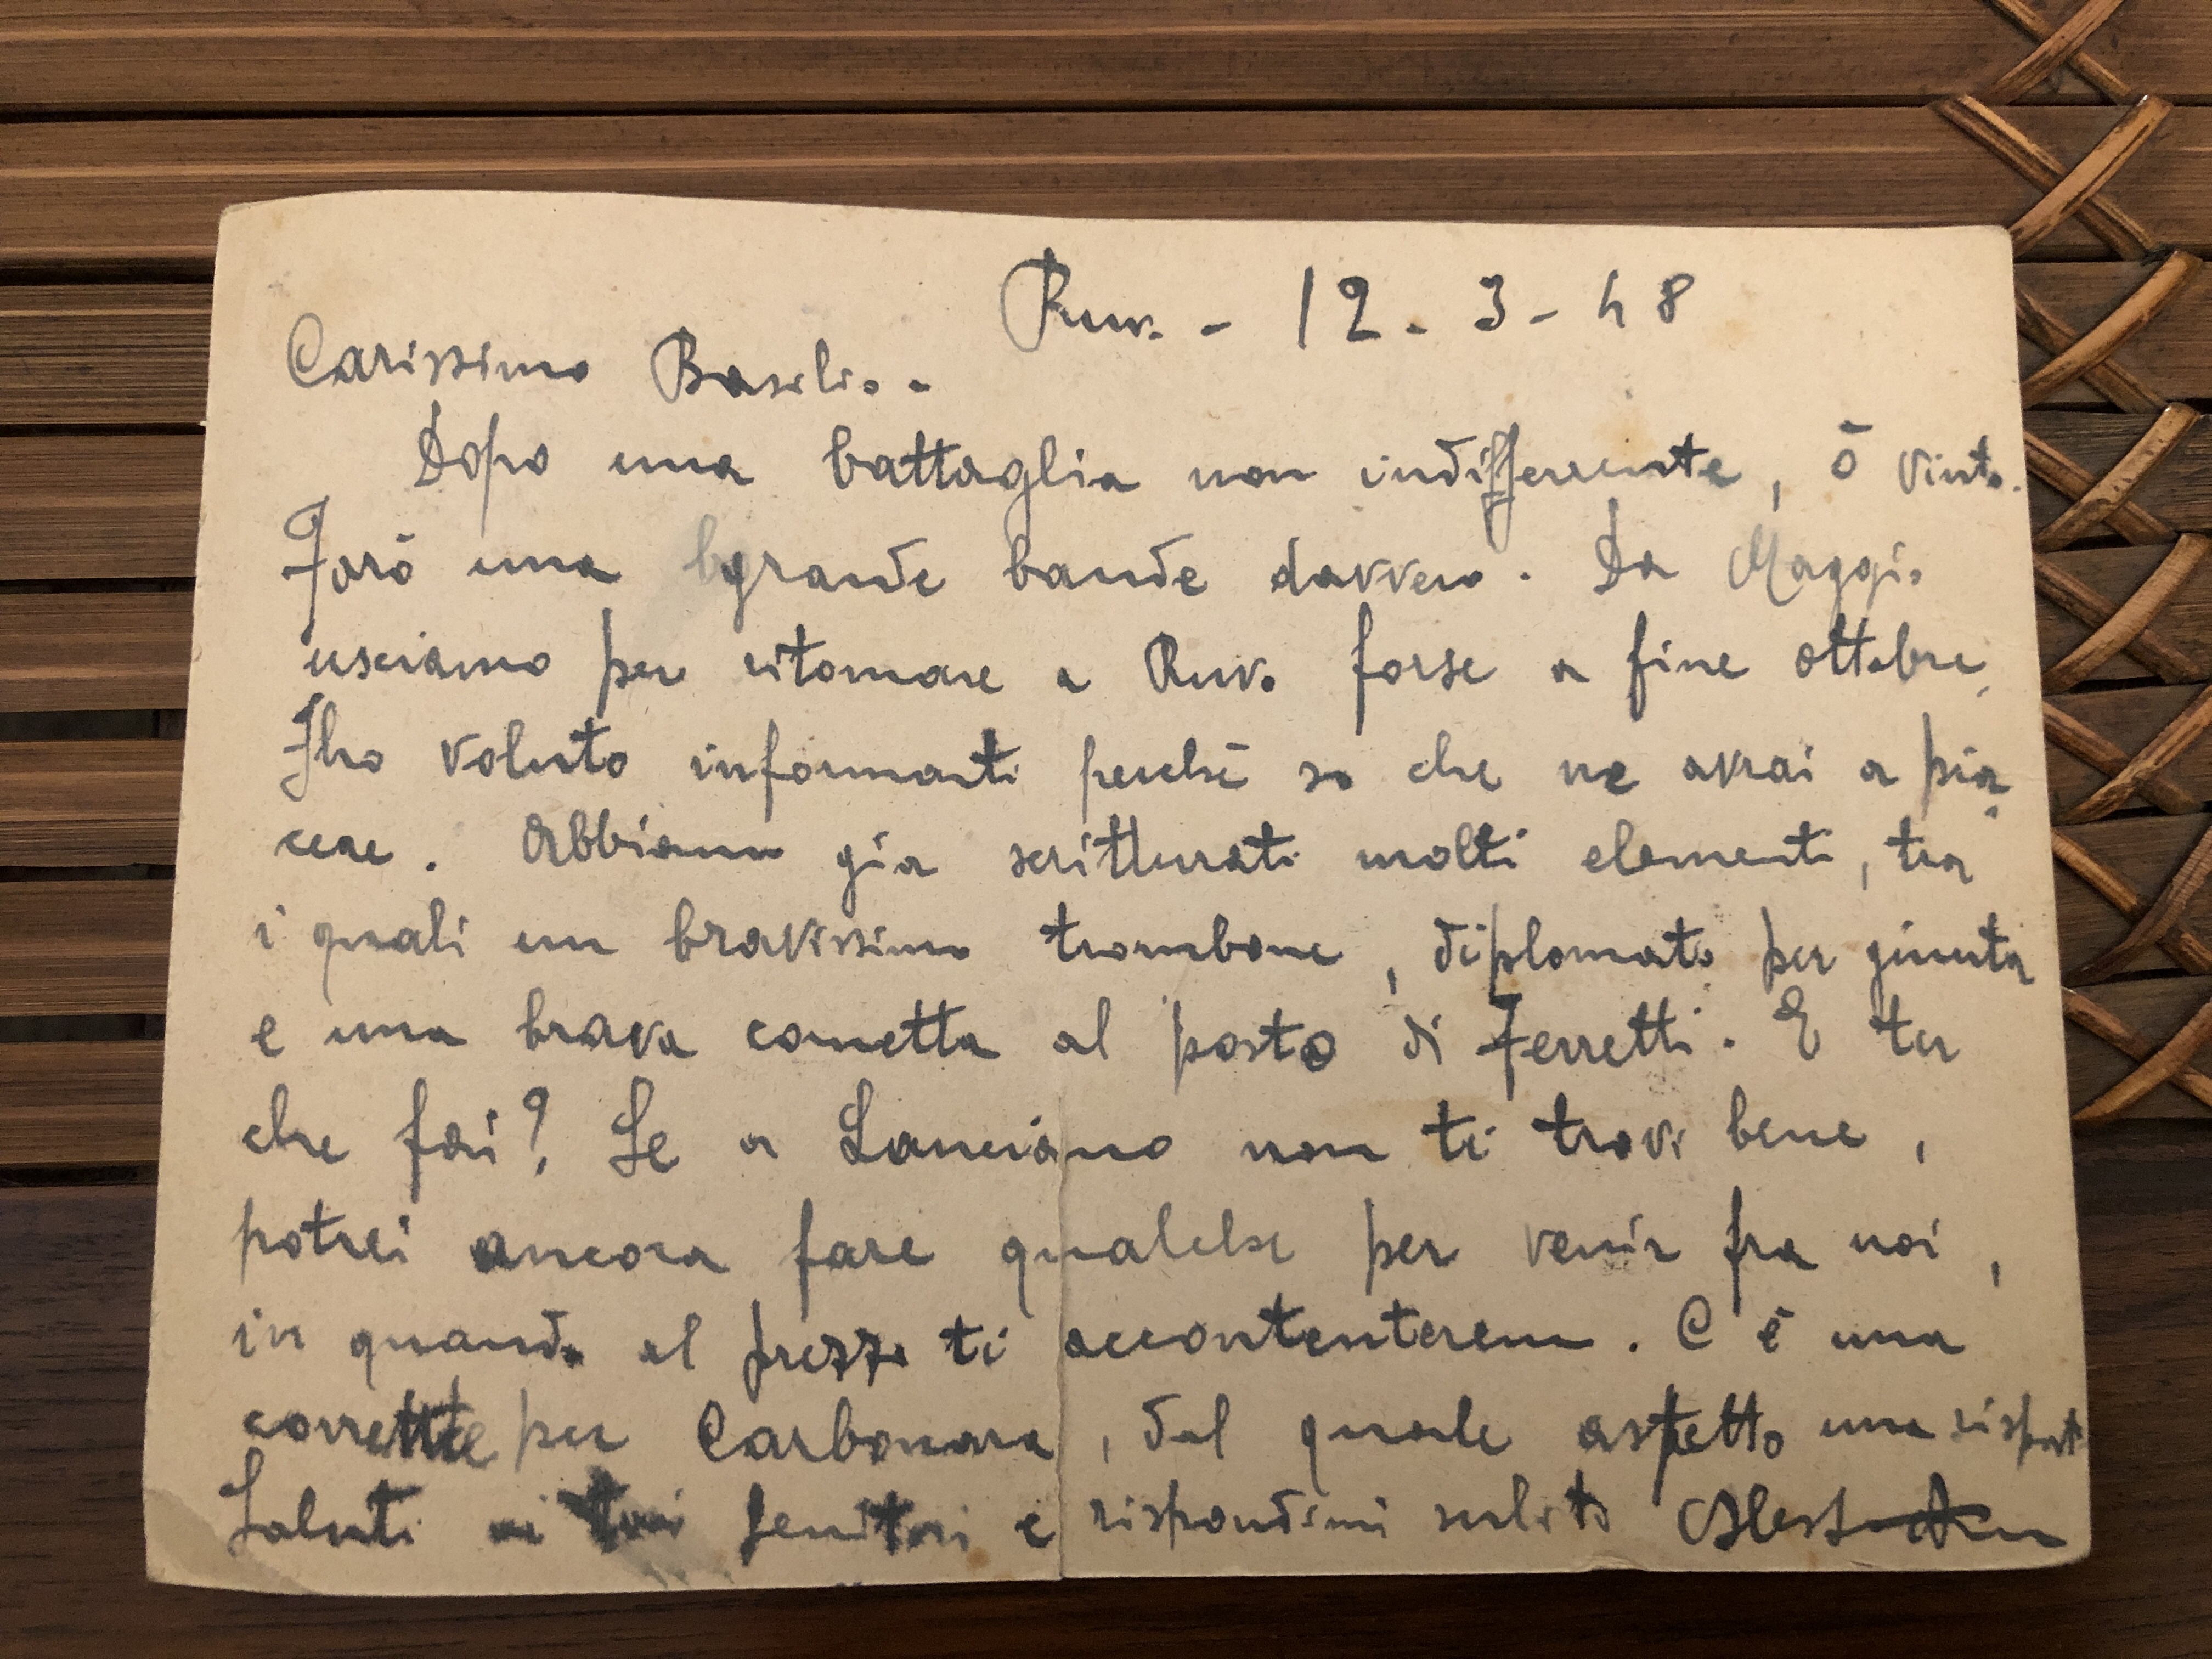 Ruvo - 12 - 3 - 48
Carissimo Basilio -
Dopo una battaglia non indifferente, ò vinto.
Farò una grande bande davvero. Da Maggio
usciamo per ritornare a Ruvo forse a fine ottobre,
Tho voluto informarti perchè so che ne avrai a pia
cere. Abbiamo già scritturati molti elementi, tra
i quali un bravissimo trombone, diplomato per giunta
e una brava cornetta al posto di Ferretti. E tu
che fai? Se a Lanciano non ti trovi bene,
potrei ancora fare qualche per venir fra noi,
in quando al prezzo ti accontenteremo. C'è una
per Carbonara, dal quale aspetto una
Saluti ai tuoi Genitori e rispondimi subito